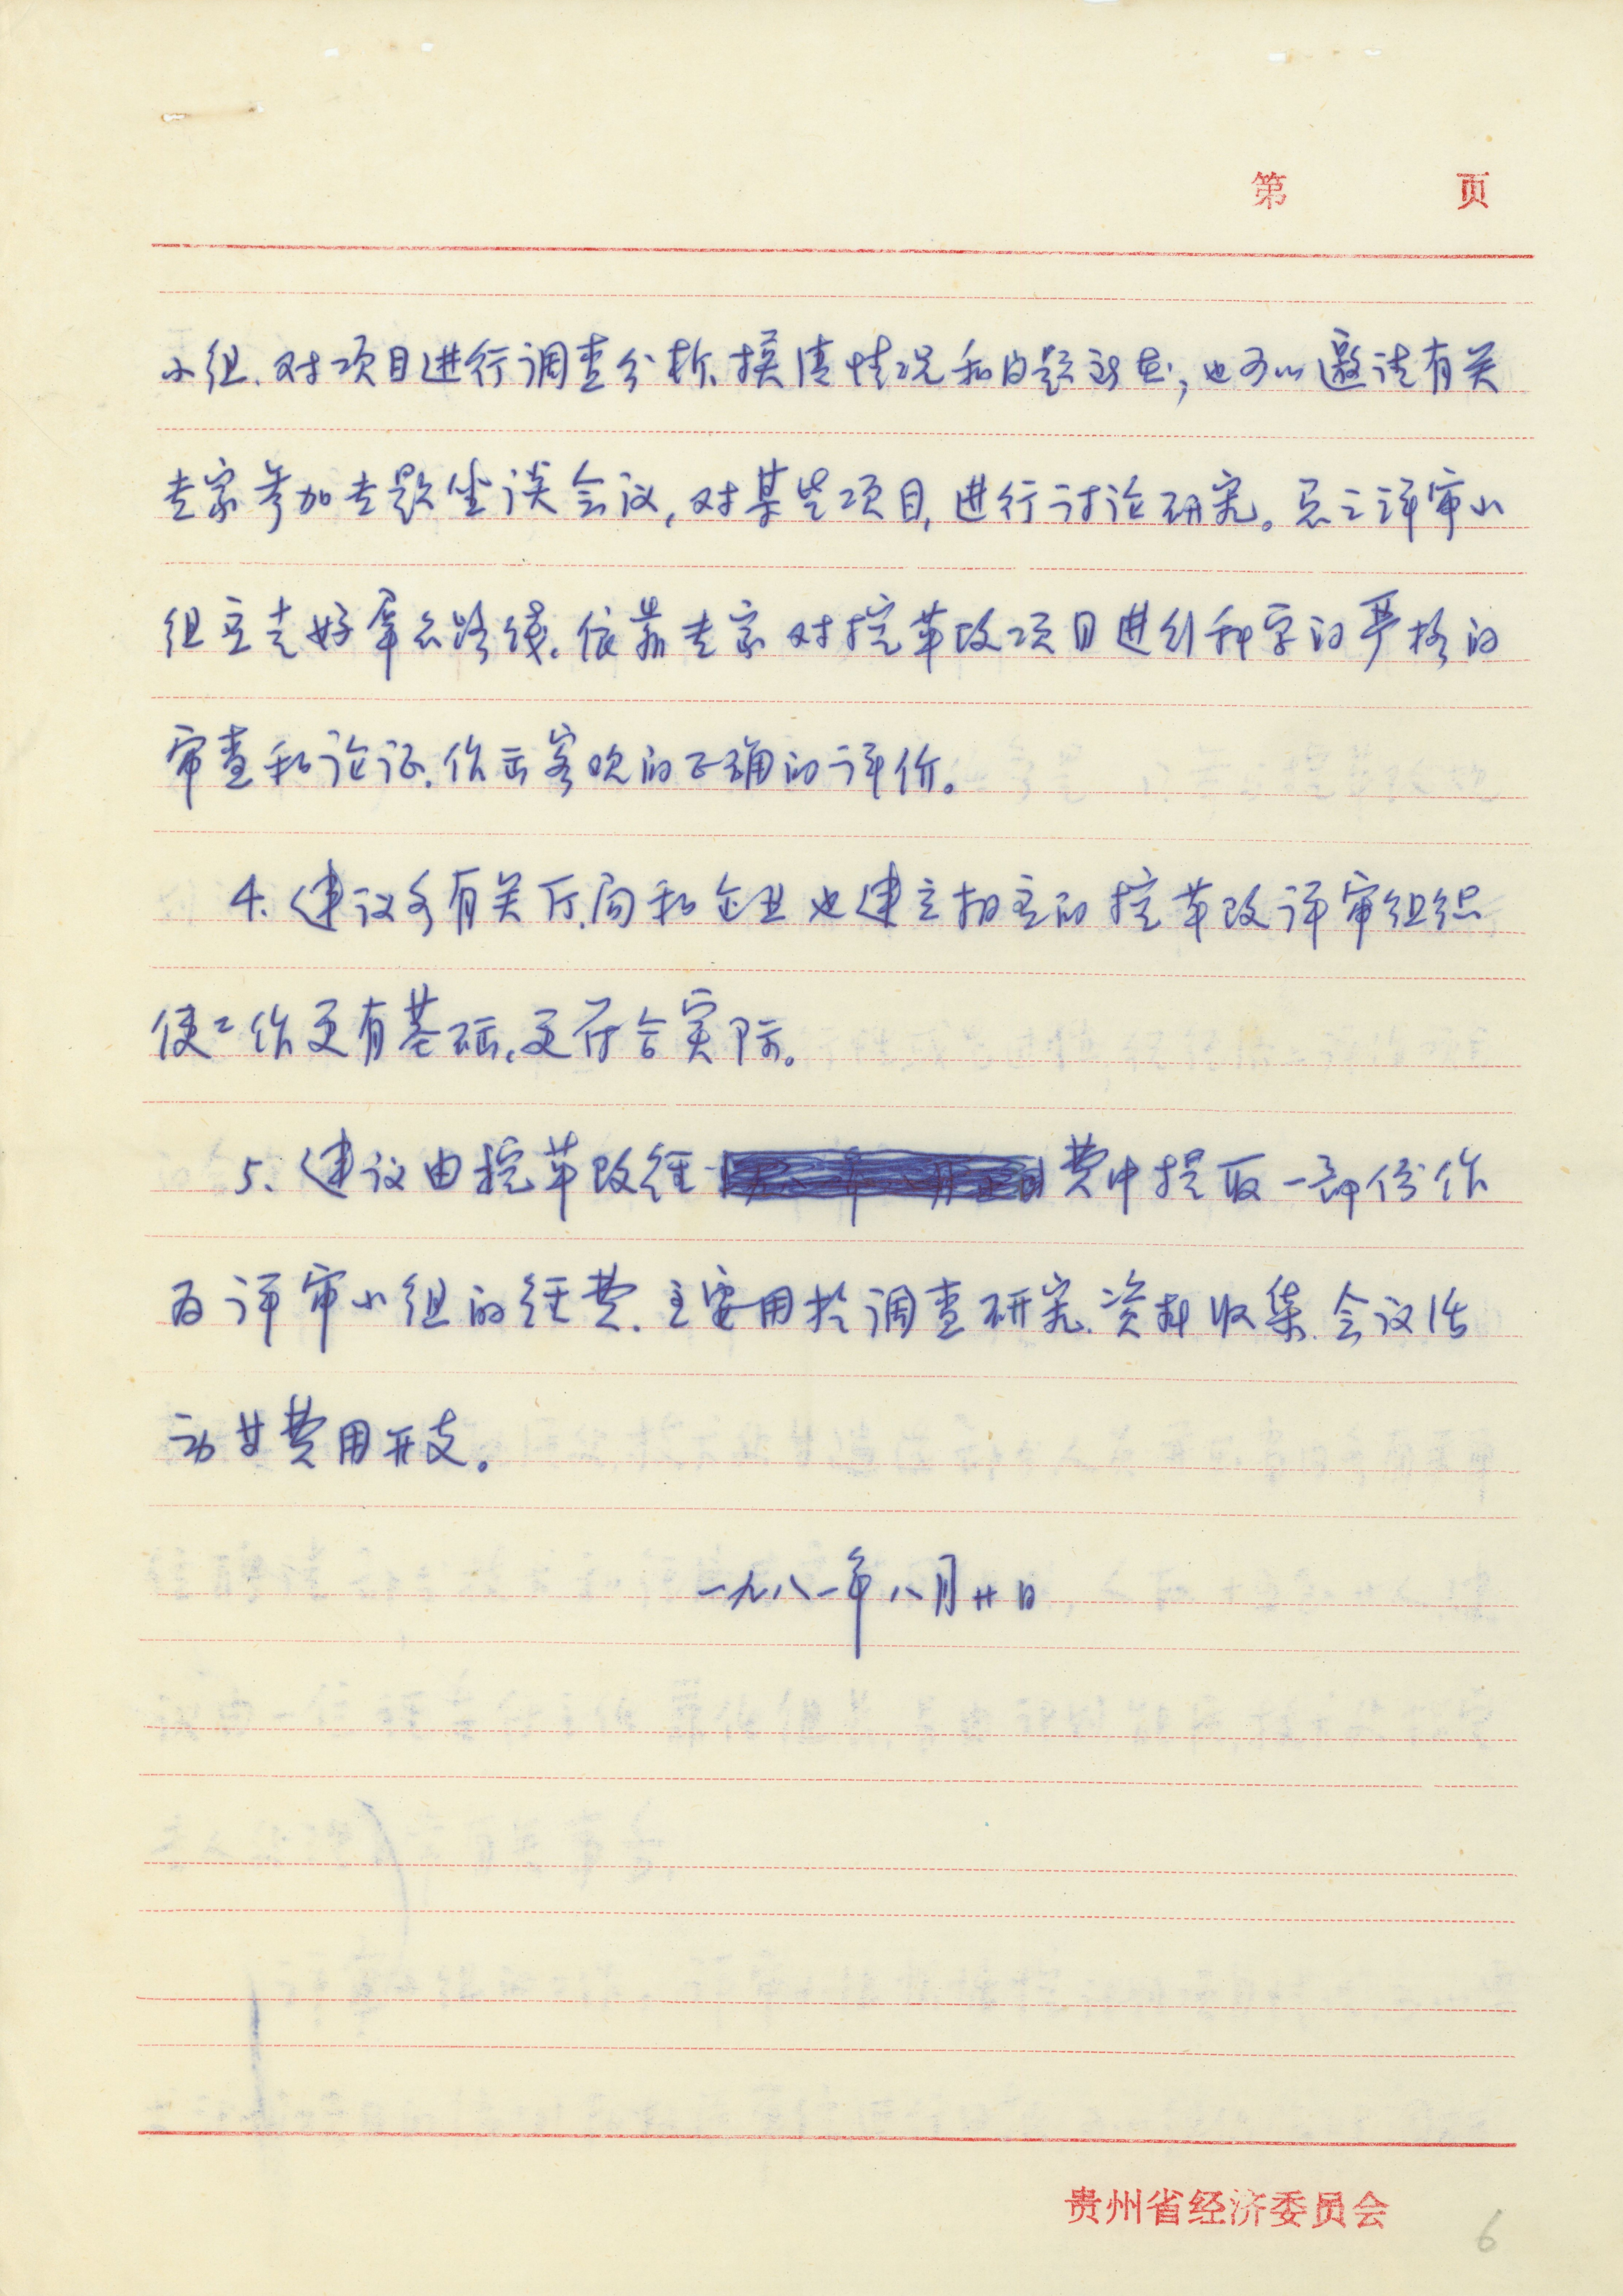 第 页
小组、对项目进行调查分析、摸清情况和问题所在，也可以邀请有关
专家参加专题坐谈会议，对某些项目，进行讨论研究。总之评审小
组应走好群众路线、依靠专家对挖革改项目进行科学的严格的
审查和论证、作出客观的正确的评价。
4、建议各有关厅、局和企业也建立相应的挖革改评审组织
使工作更有基础、更符合实际。
5、建议由挖革改经费中提取一部份作
为评审小组的经费、主要用於调查研究、资料收集、会议活
动廿费用开支。
一九八一年八月廿日
贵州省经济委员会
6